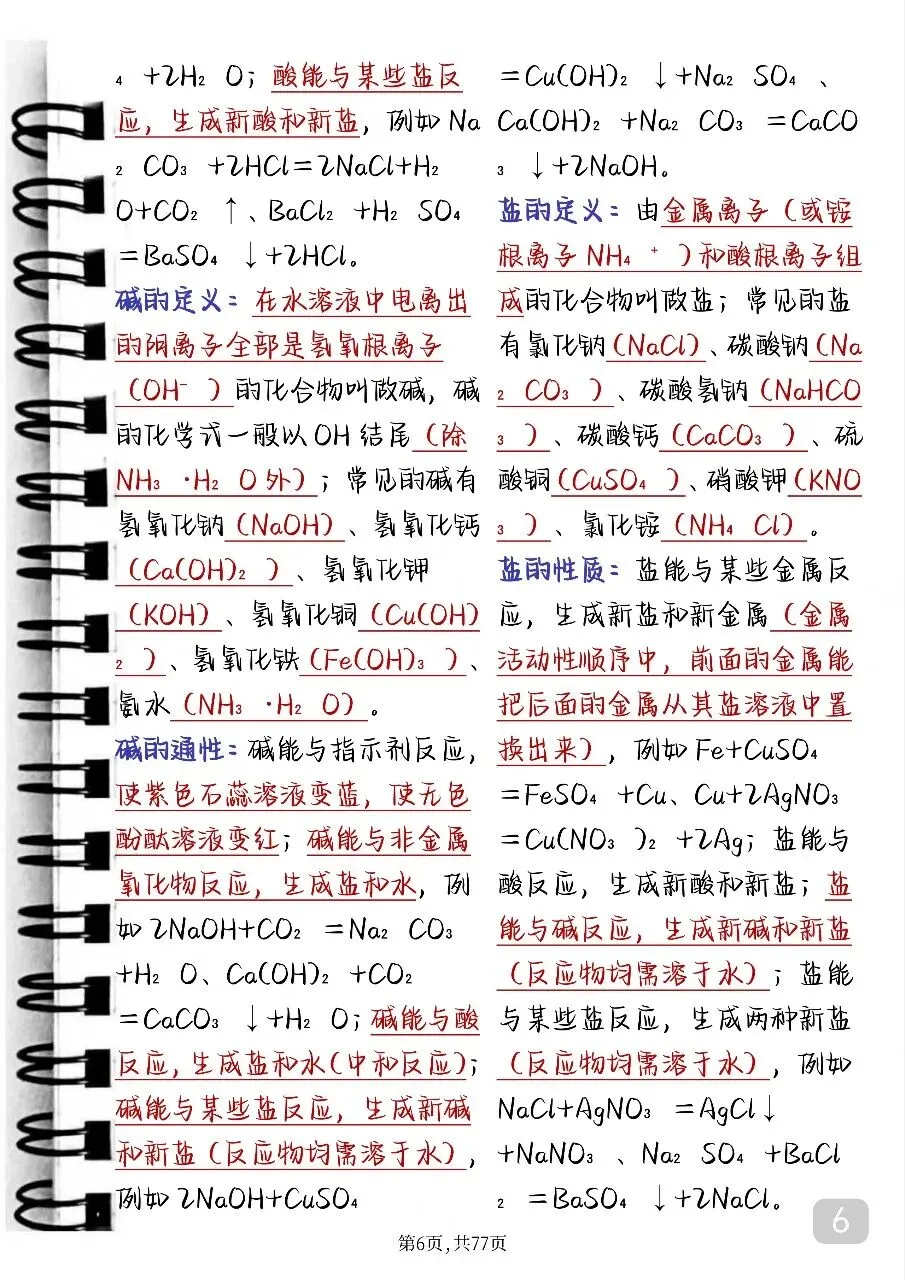 ₄ +2H₂ O；酸能与某些盐反
应，生成新酸和新盐，例如Na
₂ CO₃ +2HCl=2NaCl+H₂
O+CO₂ ↑、BaCl₂ +H₂ SO₄
=BaSO₄ ↓+2HCl。
碱的定义：在水溶液中电离出
的阴离子全部是氢氧根离子
（OH⁻ ）的化合物叫做碱，碱
的化学式一般以OH结尾（除
NH₃ ·H₂ O外）；常见的碱有
氢氧化钠（NaOH）、氢氧化钙
（Ca(OH)₂ ）、氢氧化钾
（KOH）、氢氧化铜（Cu(OH)
₂ ）、氢氧化铁（Fe(OH)₃ ）、
氨水（NH₃ ·H₂ O）。
碱的通性：碱能与指示剂反应，
使紫色石蕊溶液变蓝，使无色
酚酞溶液变红；碱能与非金属
氧化物反应，生成盐和水，例
如2NaOH+CO₂ =Na₂ CO₃
+H₂ O、Ca(OH)₂ +CO₂
=CaCO₃ ↓+H₂ O；碱能与酸
反应，生成盐和水（中和反应）；
碱能与某些盐反应，生成新碱
和新盐（反应物均需溶于水），
例如2NaOH+CuSO₄
=Cu(OH)₂ ↓+Na₂ SO₄ 、
Ca(OH)₂ +Na₂ CO₃ =CaCO
₃ ↓+2NaOH。
盐的定义：由金属离子（或铵
根离子NH₄ ⁺ ）和酸根离子组
成的化合物叫做盐；常见的盐
有氯化钠（NaCl）、碳酸钠（Na
₂ CO₃ ）、碳酸氢钠（NaHCO
₃ ）、碳酸钙（CaCO₃ ）、硫
酸铜（CuSO₄ ）、硝酸钾（KNO
₃ ）、氯化铵（NH₄ Cl）。
盐的性质：盐能与某些金属反
应，生成新盐和新金属（金属
活动性顺序中，前面的金属能
把后面的金属从其盐溶液中置
换出来），例如Fe+CuSO₄
=FeSO₄ +Cu、Cu+2AgNO₃
=Cu(NO₃ )₂ +2Ag；盐能与
酸反应，生成新酸和新盐；盐
能与碱反应，生成新碱和新盐
（反应物均需溶于水）；盐能
与某些盐反应，生成两种新盐
（反应物均需溶于水），例如
NaCl+AgNO₃ =AgCl↓
+NaNO₃ 、Na₂ SO₄ +BaCl
₂ =BaSO₄ ↓+2NaCl。
6
第6页,共77页